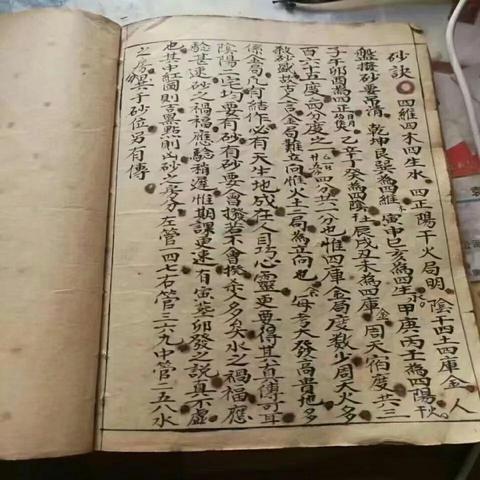 砂訣 四維四木四生水 四正陽干火局明 陰干四土四庫金 人
盤撥砂要弔清 乾坤艮巽為四維木 寅申巳亥為四生水 甲庚丙壬為四陽火
子午卯酉為四正 乙辛丁癸為四陰土 辰戌丑未為四庫金 周天宿度共三
百六十五度 四分度之一 四分共一分也 惟四庫金局度數少 周天火多
故 古人言金局難立向 惟火土二局為立向也 每考大發高貴地多
係金局 凡有結作 必有天生地成 在人自巧心靈 更要得其真傳可耳
陰陽二宅均要有砂 有砂要會撥 若不會撥 殺人多矣 水之禍福應
驗甚速 砂之禍福應驗稍遲 惟期課更速 有寅葬卯發之說 真不虛
也 其中紅圈則吉 黑點則凶 砂之房分 左管一四七 右管三六九 中管二五八 水
之房 共于砂位另有傳